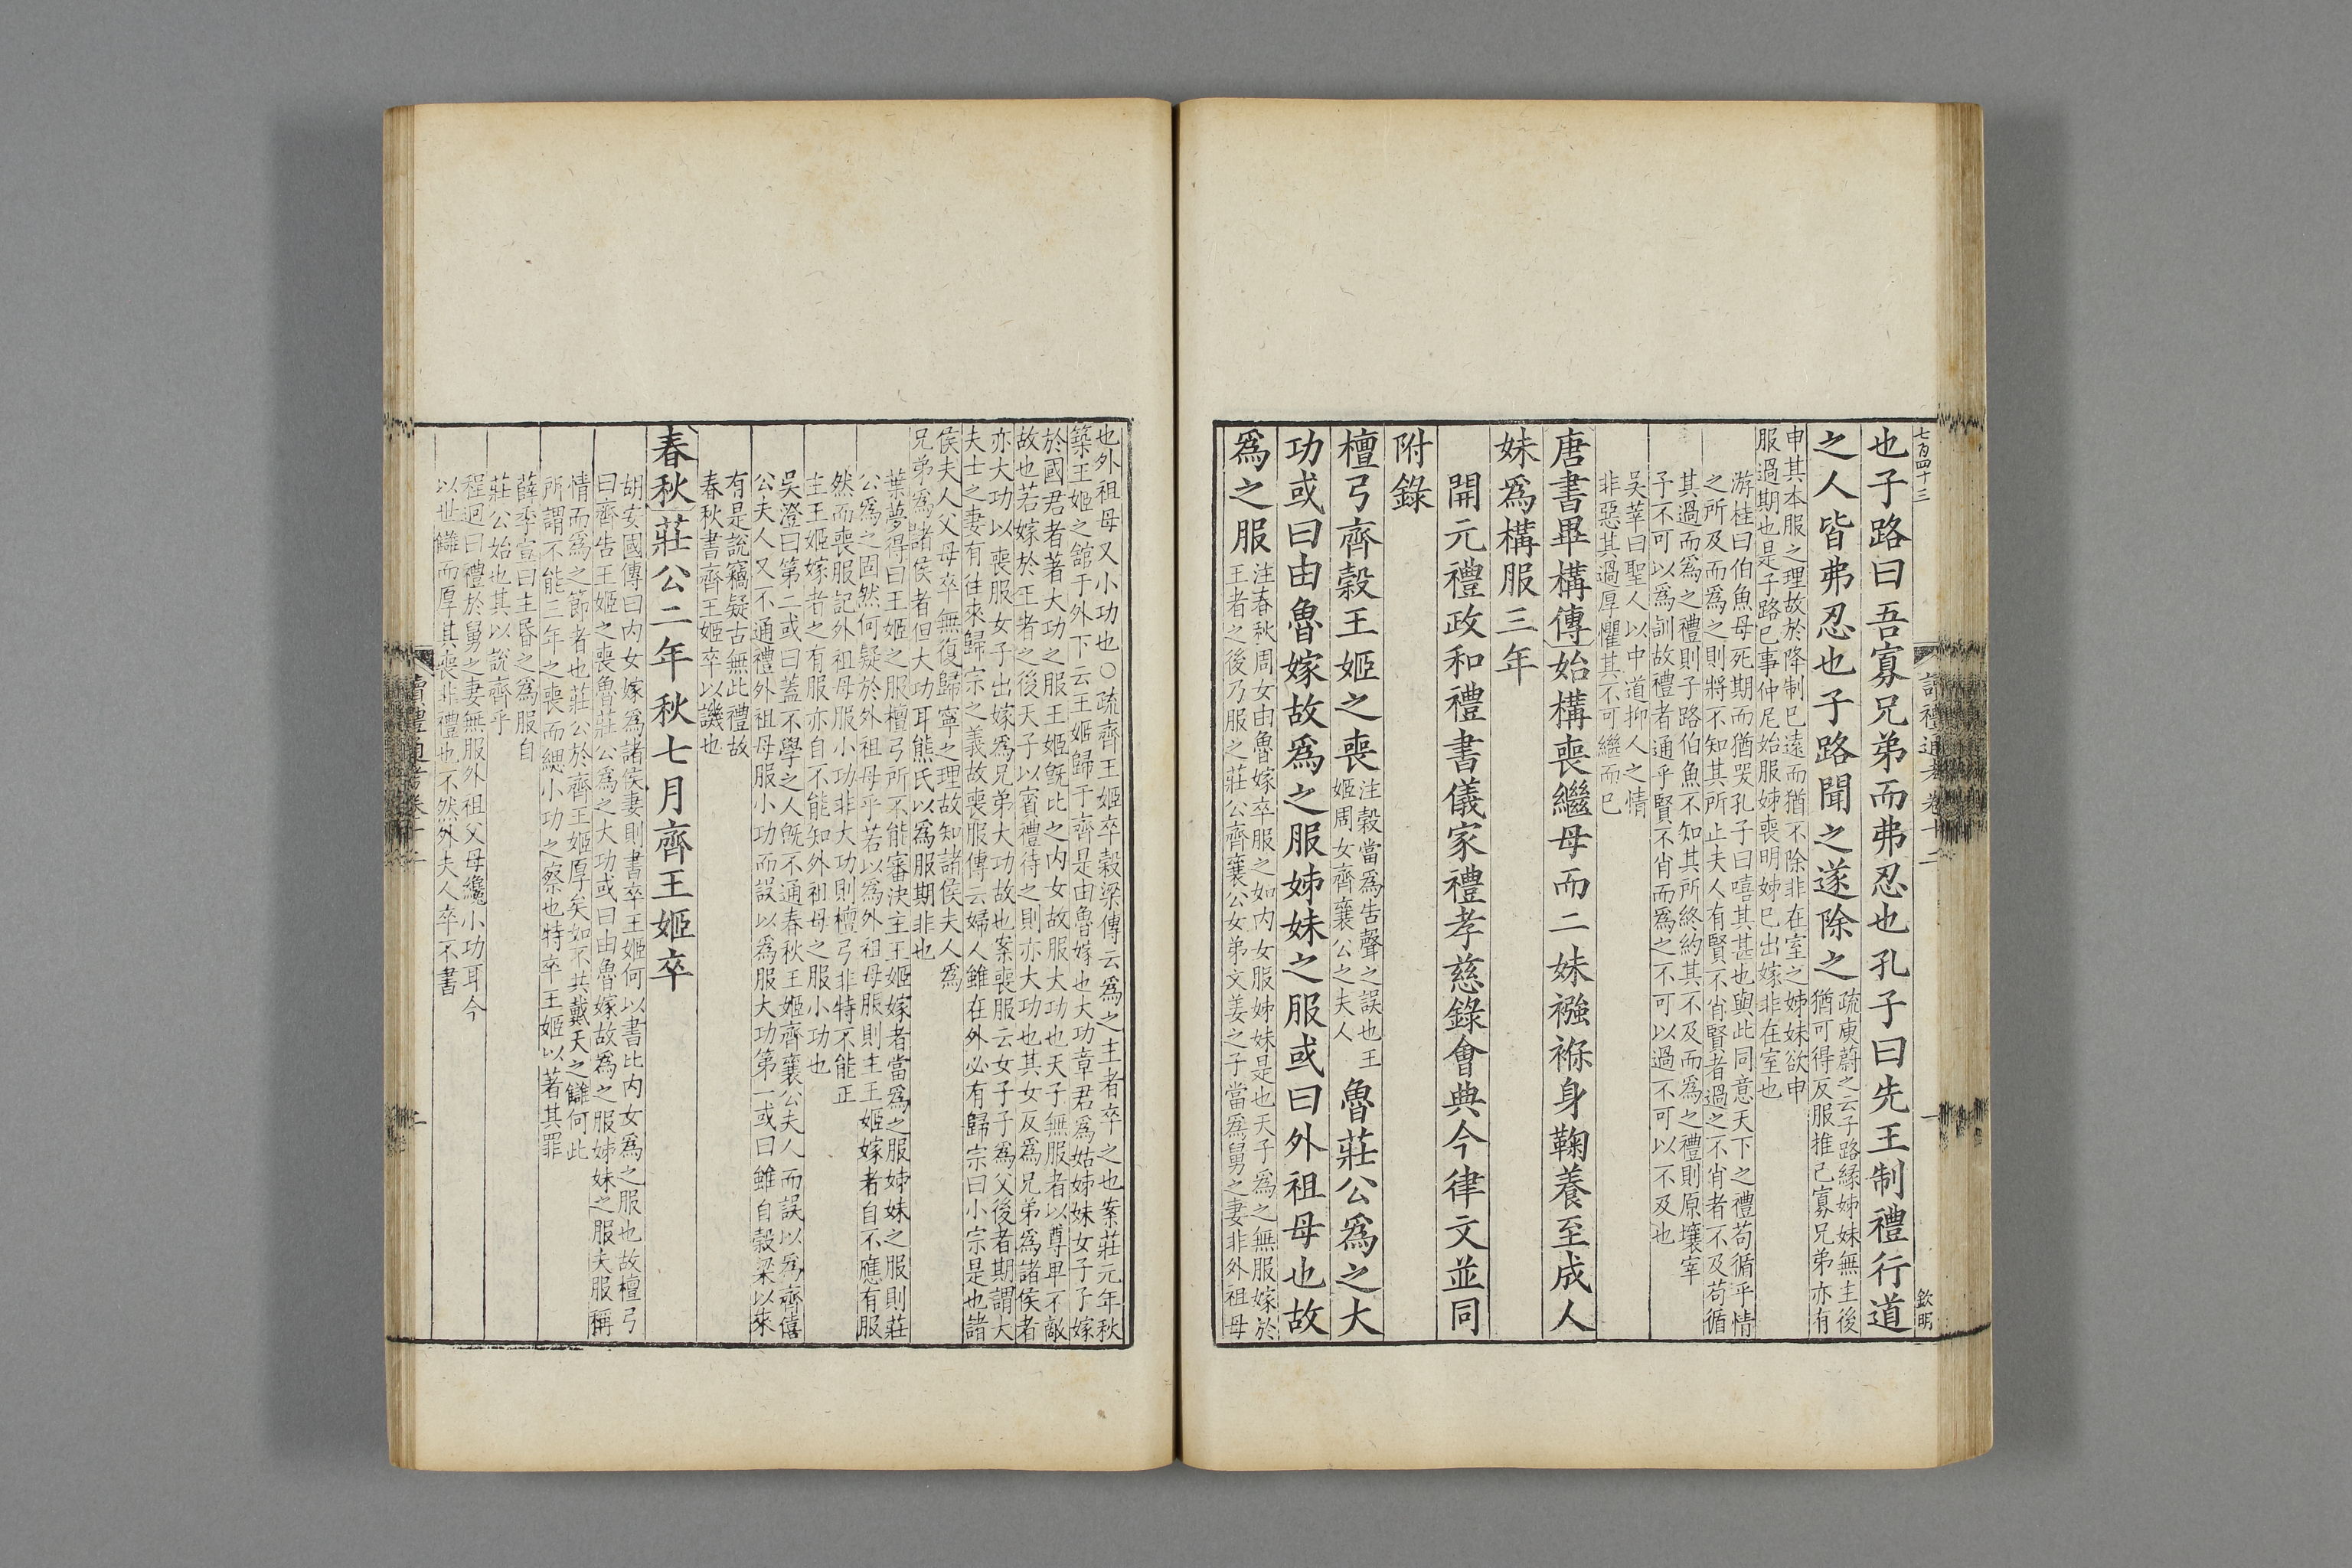 七百四十三
讀禮通考卷十二
一
欽明
也子路曰吾寡兄弟而弗忍也孔子曰先王制禮行道
之人皆弗忍也子路聞之遂除之
疏庾蔚之云子路緣姊妹無主後
猶可得反服推己寡兄弟亦有
申其本服之理故於降制已遠而猶不除非在室之姊妹欲申
服過期也是子路已事仲尼始服姊喪明姊已出嫁非在室也
游桂曰伯魚母死期而猶哭孔子曰嘻其甚也與此同意天下之禮苟循乎情
之所及而為之則將不知其所止夫人有賢不肖賢者過之不肖者不及苟循
其過而為之禮則子路伯魚不知其所終約其不及而為之禮則原壤宰
予不可以為訓故禮者通乎賢不肖而為之不可以過不可以不及也
吳莘曰聖人以中道抑人之情
非惡其過厚懼其不可繼而已
唐書畢構傳始構喪繼母而二妹襁褓身鞠養至成人
妹爲構服三年
開元禮政和禮書儀家禮孝慈錄會典今律文並同
附錄
檀弓齊穀王姬之喪
注穀當爲告聲之誤也王
姬周女齊襄公之夫人
魯莊公爲之大
功或曰由魯嫁故爲之服姊妹之服或曰外祖母也故
爲之服
注春秋周女由魯嫁卒服之如內女服姊妹是也天子爲之無服嫁於
王者之後乃服之莊公齊襄公女弟文姜之子當爲舅之妻非外祖母
也外祖母又小功也○疏齊王姬卒穀梁傳云爲之主者卒之也案莊元年秋
築王姬之舘于外下云王姬歸于齊是由魯嫁也大功章君爲姑姊妹女子子嫁
於國君者著大功之服王姬旣比之內女故服大功也天子無服者以尊卑不敵
故也若嫁於王者之後天子以賓禮待之則亦大功也其女反爲兄弟爲諸侯者
亦大功以喪服女子出嫁爲兄弟大功故也案喪服云女子子爲父後者期謂大
夫士之妻有往來歸宗之義故喪服傳云婦人雖在外必有歸宗曰小宗是也諸
侯夫人父母卒無復歸寧之理故知諸侯夫人爲
兄弟爲諸侯者但大功耳熊氏以爲服期非也
葉夢得曰王姬之服檀弓所不能審決主王姬嫁者當爲之服姊妹之服則莊
公爲之固然何疑於外祖母乎若以爲外祖母服則主王姬嫁者自不應有服
然而喪服記外祖母服小功非大功則檀弓非特不能正
主王姬嫁者之有服亦自不能知外祖母之服小功也
吳澄曰第二或曰蓋不學之人旣不通春秋王姬齊襄公夫人而誤以爲齊僖
公夫人又不通禮外祖母服小功而誤以爲服大功第一或曰雖自穀梁以來
有是說竊疑古無此禮故
春秋書齊王姬卒以譏也
春秋莊公二年秋七月齊王姬卒
胡安國傳曰內女嫁爲諸侯妻則書卒王姬何以書比內女爲之服也故檀弓
曰齊告王姬之喪魯莊公爲之大功或曰由魯嫁故爲之服姊妹之服夫服稱
情而爲之節者也莊公於齊王姬厚矣如不共戴天之讎何此
所謂不能三年之喪而緦小功之察也特卒王姬以著其罪
薛季宣曰主昏之爲服自
莊公始也其以說齊乎
程迥曰禮於舅之妻無服外祖父母纔小功耳今
以世讎而厚其喪非禮也不然外夫人卒不書
讀禮通考卷十二
二